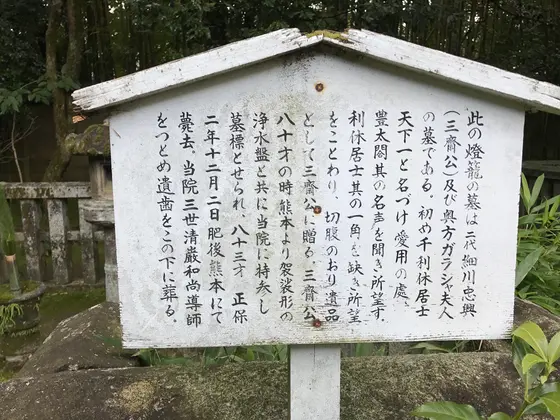 此の燈籠の墓は二代細川忠興
(三齋公)及び奥方ガラシャ夫人
の墓である。初め千利休居士
天下一と名づけ愛用の處、
豊太閤其の名声を聞き所望す、
利休居士其の一角を缺き所望
をことわり、切腹のおり遺品
として三齋公に贈る、三齋公
八十才の時熊本より袈裟形の
浄水盤と共に当院に持参し
墓標とせられ、八十三才 正保
二年十二月二日肥後熊本にて
薨去、当院三世清巌和尚導師
をつとめ遺歯をこの下に葬る。